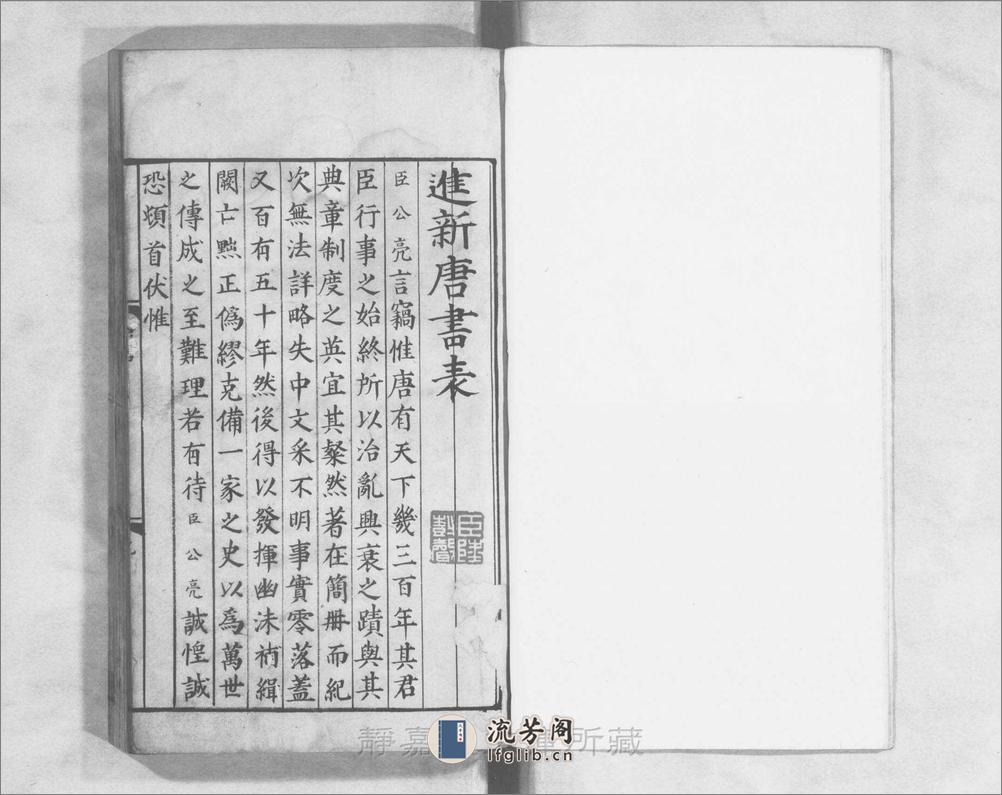 進新唐書表
臣公亮言竊惟唐有天下幾三百年其君
臣行事之始終所以治亂興衰之蹟與其
典章制度之英宜其粲然著在簡冊而紀
次無法詳略失中文采不明事實零落蓋
又百有五十年然後得以發揮幽沬補緝
闕亡黜正偽繆克備一家之史以爲萬世
之傳成之至難理若有待臣公亮誠惶誠
恐頓首伏惟
臣陸
樹聲
靜嘉 所藏
流芳阁
lfglib.cn